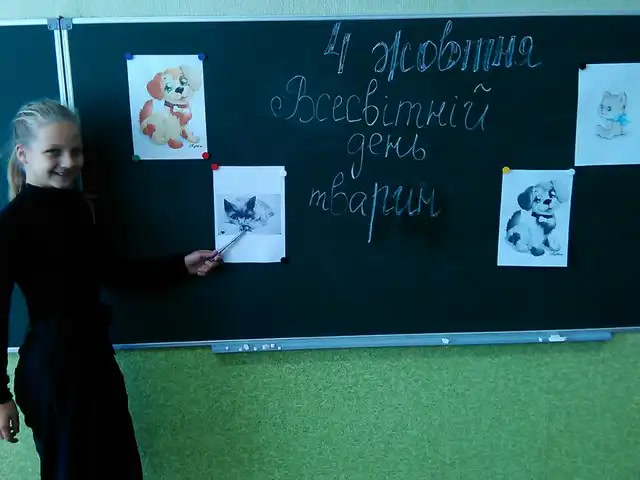 4 жовтня
Всесвітній
день
тварин